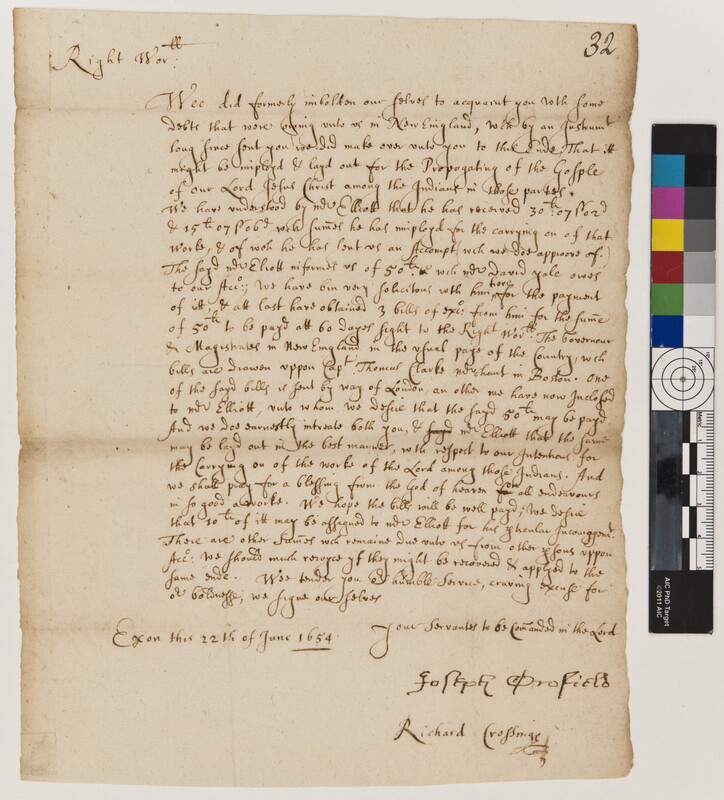 32
Right Wor:ll
Wee did formerly imbolden our selves to acquaint you wth some
debts that were owing unto us in New England, wch by an Instrumt
long since sent you wee did make over unto you to this Ende, That itt
might be imployd & layd out for the Propogating of the Gosple
of our Lord Jesus Christ among the Indians in those partes.
We have understood by mr Elliott that he has received 30lb: 07s 02d
& 15lb 07s 06d wch summes he has imployd for the carrying on of that
worke, & of wch he has sent us an Accompt, wch we doe approove of.
The sayd mr Eliott informes us of 50lb wch mr David yale owes
to our Acco; We have bin very solicitous wth him there for the payment
of itt, & att last have obtained 3 bills of exc: from him for the summe
of 50lb to be payd att 60 dayes sight to the Right Worll The Governour
& Magistrates in New England in the usual paye of the Country, wch
bills are drawen uppon Capt Thomas Clarke merchant in Boston. One
of the sayd bills is sent by way of London, an other we have now Inclosed
to mr Elliott, unto whom we desire that the sayd 50lb may be payd
And we doe earnestly intreate both you, & mr Elliott that the same
may be layd out in the best manner, wth respect to our Intentions for
the Carrying on of the worke of the Lord among those Indians. And
we shall pray for a blessing from the God of heaven on all endeavours
in so good a worke. We hope the bills will be well payd; We desire
that 10lb of itt may be assigned to mr Elliott for his pticular Incouragmt.
There are other summes wch remaine due unto us from other psons uppon
Acco: we should much rejoyce if they might be recovered & applyed to the
same ende. Wee tender you or humble Service, craving excuse for
or boldnesse, we signe our selves
Exon this 22th of June 1654. Your Servantes to be Comanded in the Lord
Joseph
Richard Crossinge
AIC PhD Target
©2011 AIC